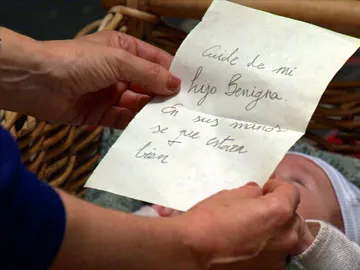 Cuide de mi
hijo Benigna.
En sus manos
se que estara
bien